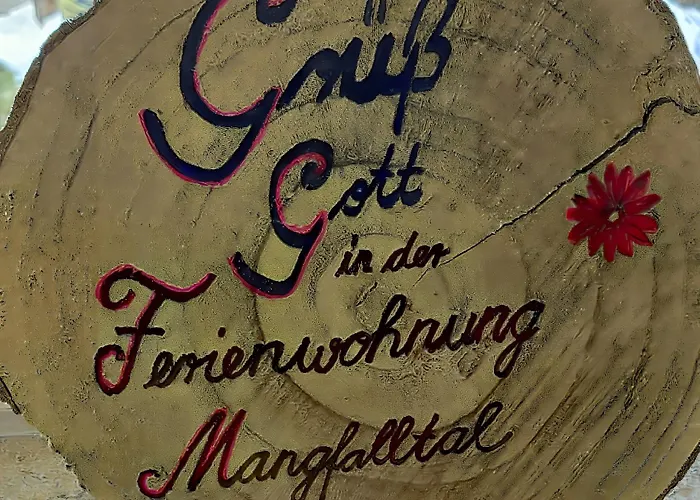 Grüß
Gott
in der
Ferienwohnung
Mangfalltal